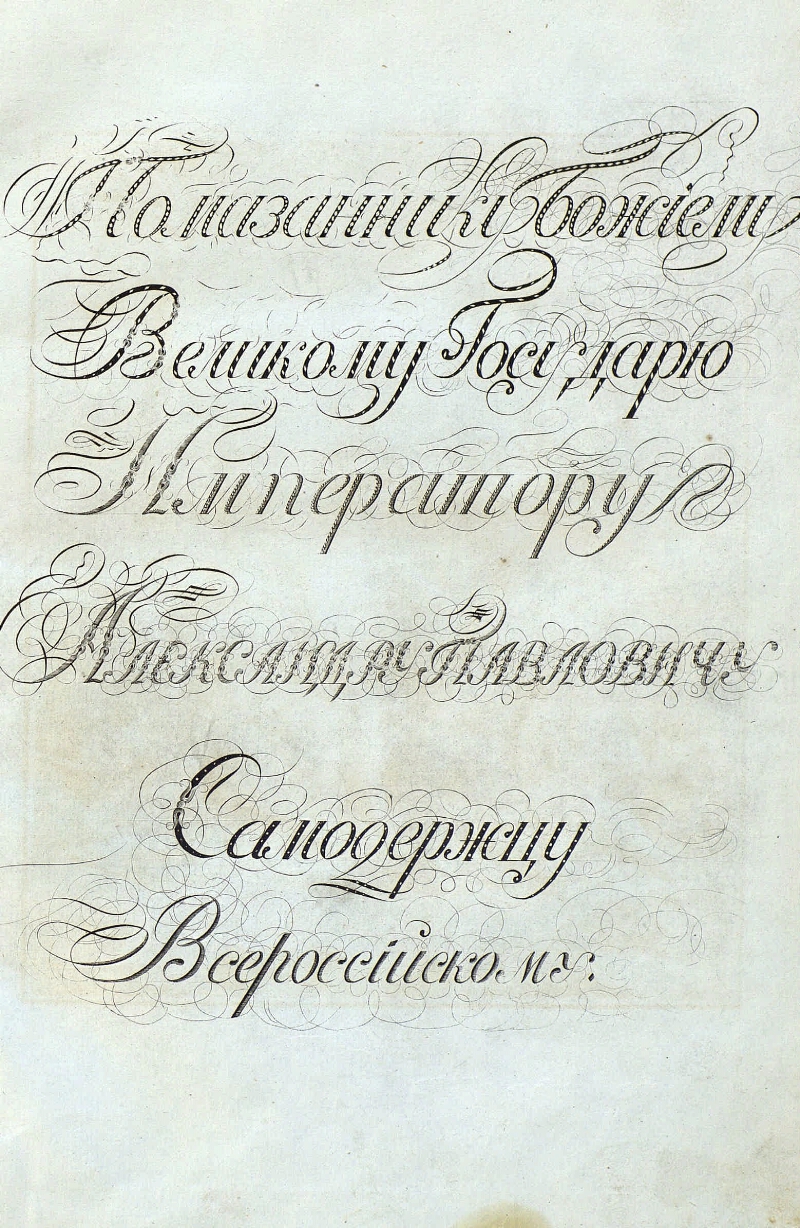 Помазаннику Божіему
Великому Государю
Императору
Александру Павловичу
Самодержцу
Всероссійскому.